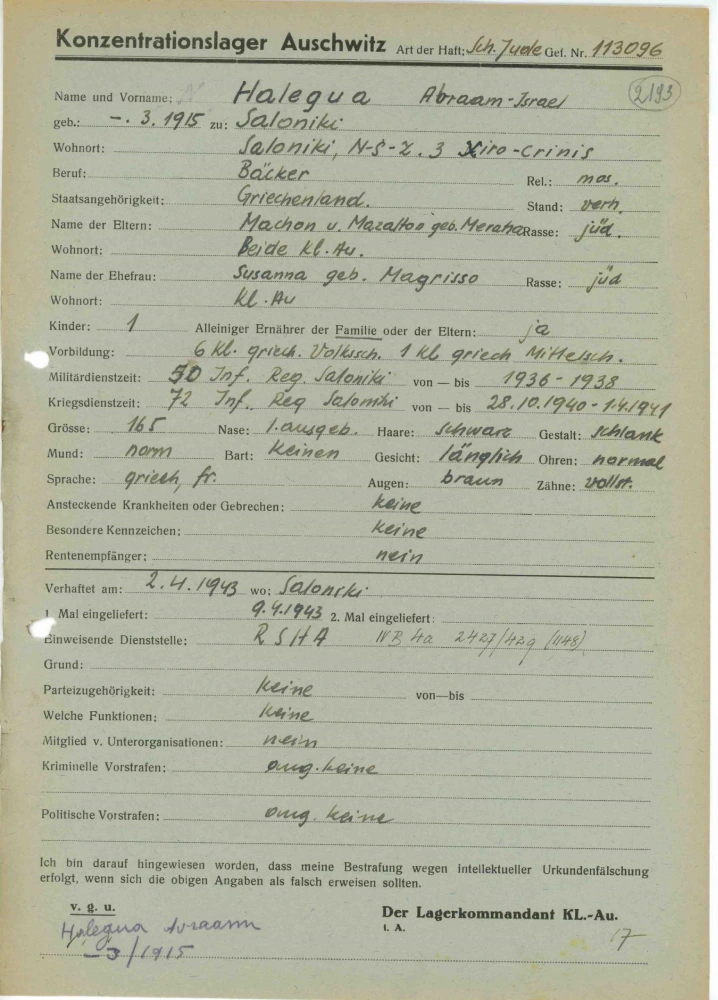 Konzentrationslager Auschwitz Art der Haft: Sch. Jude Gef. Nr. 113096
2193
Name und Vorname: Halegua Abraam-Israel
geb.: -. 3. 1915 zu: Saloniki
Wohnort: Saloniki, N-S-Z. 3 Xiro-Crinis
Beruf: Bäcker Rel.: mos.
Staatsangehörigkeit: Griechenland. Stand: verh.
Name der Eltern: Machon u. Mazaltoo geb. Meraha Rasse: jüd.
Wohnort: Beide Kl. Au.
Name der Ehefrau: Susanna geb. Magrisso Rasse: jüd
Wohnort: Kl. Au
Kinder: 1 Alleiniger Ernährer der Familie oder der Eltern: ja
Vorbildung: 6 Kl. griech. Volkssch. 1 Kl griech Mittelsch.
Militärdienstzeit: 50 Inf. Reg. Saloniki von — bis 1936 - 1938
Kriegsdienstzeit: 72 Inf. Reg Saloniki von — bis 28.10.1940 - 1.4.1941
Grösse: 165 Nase: l. ausgeb. Haare: schwarz Gestalt: schlank
Mund: norm Bart: keinen Gesicht: länglich Ohren: normal
Sprache: griech, fr. Augen: braun Zähne: vollst.
Ansteckende Krankheiten oder Gebrechen: keine
Besondere Kennzeichen: keine
Rentenempfänger: nein
Verhaftet am: 2. 4. 1943 wo: Saloniki
1. Mal eingeliefert: 9. 4. 1943 2. Mal eingeliefert:
Einweisende Dienststelle: RSHA IV B 4a 2427/42g (1148)
Grund:
Parteizugehörigkeit: keine von—bis
Welche Funktionen: keine
Mitglied v. Unterorganisationen: nein
Kriminelle Vorstrafen: ang. keine
Politische Vorstrafen: ang. keine
Ich bin darauf hingewiesen worden, dass meine Bestrafung wegen intellektueller Urkundenfälschung
erfolgt, wenn sich die obigen Angaben als falsch erweisen sollten.
v. g. u. Der Lagerkommandant KL.-Au.
Halegua Avraam I. A.
- 3/1915 17